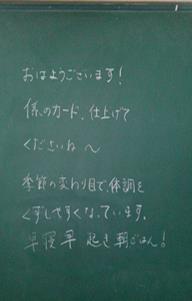 おはようございます!
係のカード、仕上げて
くださいね〜
季節の変わり目で体調を
くずしやすくなっています。
早寝早起き朝ごはん!